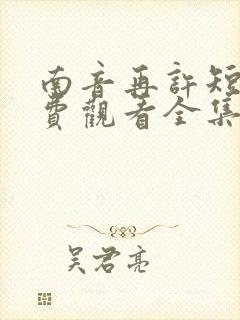 南音再許短
費觀看全集
吴君亮